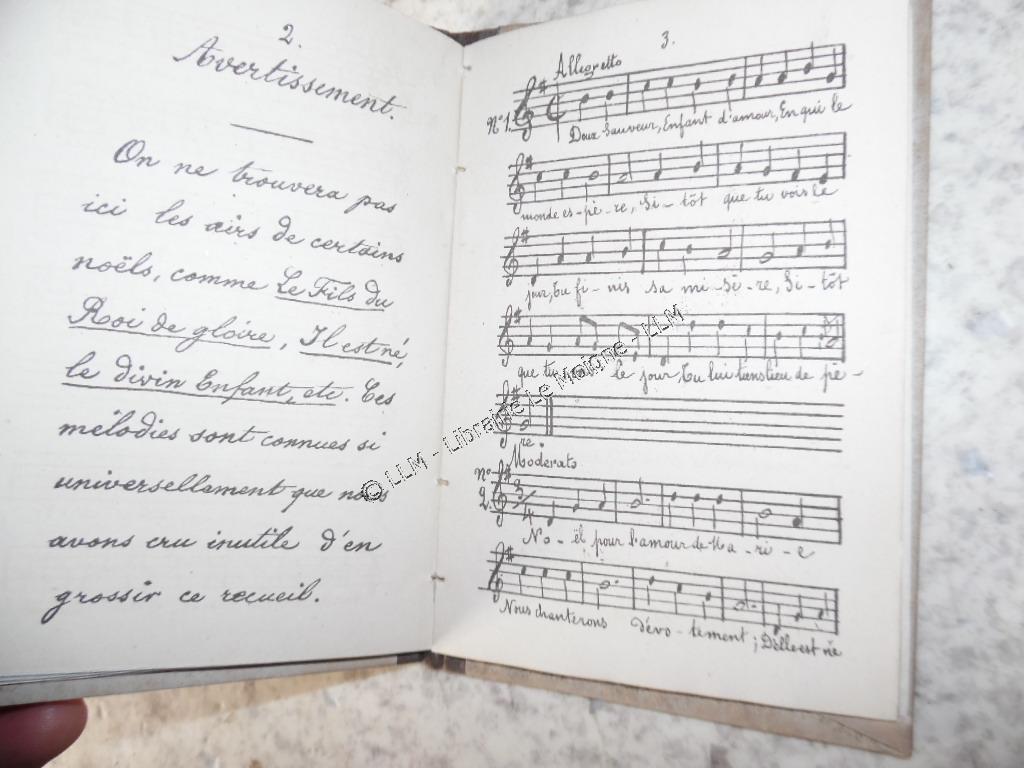 2.
Avertissement.
On ne trouvera pas
ici les airs de certains
noëls, comme Le Fils du
Roi de gloire, Il est né,
le divin Enfant, etc. Ces
mélodies sont connues si
universellement que nous
avons cru inutile d'en
grossir ce recueil.
3.
Allegretto
N° 1.
Doux Sauveur, Enfant d'amour, En qui le
monde es-pè-re, Si-tôt que tu vois le
jour, Tu fi-nis sa mi-sè-re, Si-tôt
que tu le jour, Tu lui tiens lieu de pè-
re.
Moderato
N° 2.
3/4
No-ël pour l'amour de Ma-ri-e
Nous chanterons dévo-tement; D'elle est né
© LLM - Librairie Le Moigne - LLM